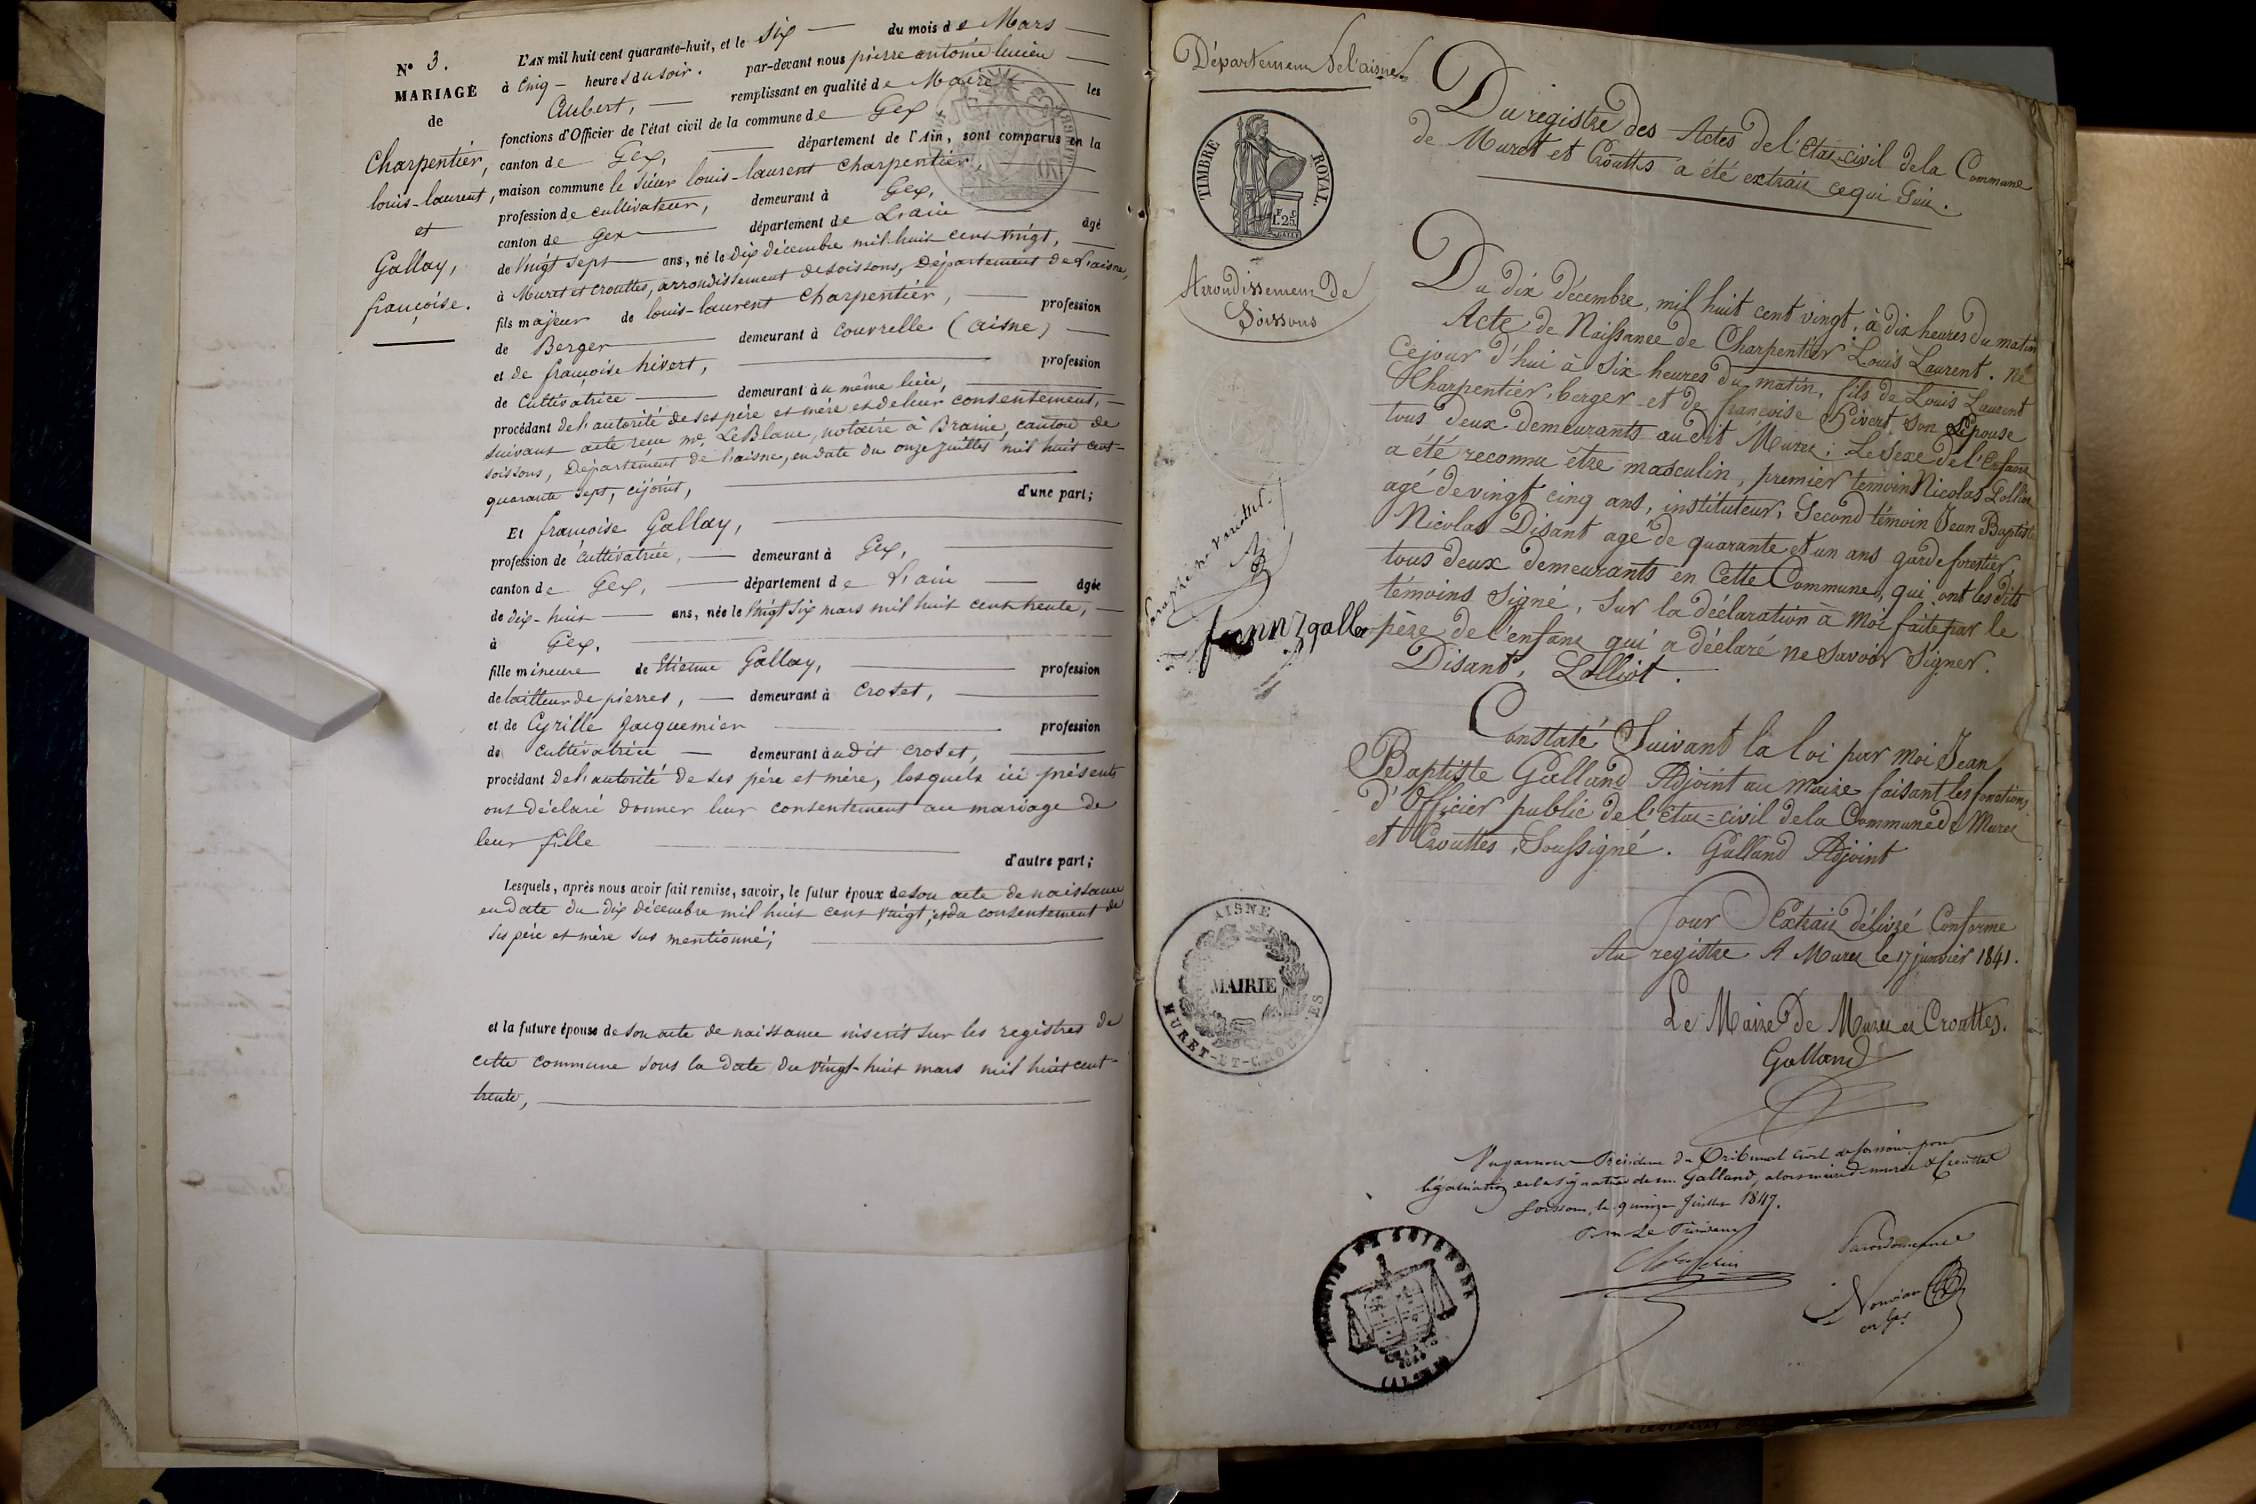 N° 3.
MARIAGE
de
Charpentier,
louis-laurent,
et
Gallay,
françoise.
L'AN mil huit cent quarante-huit, et le six du mois de Mars
à Cinq heures du soir. par-devant nous pierre antoine lucien
Aubert, remplissant en qualité de Maire les
fonctions d'Officier de l'état civil de la commune de Gex
canton de Gex, département de l'Ain, sont comparus en la
maison commune le sieur louis-laurent Charpentier,
profession de cultivateur, demeurant à Gex,
canton de Gex département de L'ain âgé
de Vingt sept ans, né le dix décembre mil huit cent vingt,
à Muret et Crouttes, arrondissement de soissons, Département de l'aisne,
fils majeur de louis-laurent Charpentier, profession
de Berger demeurant à Couvrelle (aisne)
et de françoise hivert, profession
de Cultivatrice demeurant à u même lieu,
procédant de l'autorité de ses père et mère et de leur consentement,
suivant acte reçu me LeBlanc, notaire à Braine, canton de
soissons, Département de l'aisne, en date du onze juillet mil huit cent-
quarante sept, cijoint, d'une part;
Et françoise Gallay,
profession de cultivatrice, demeurant à Gex,
canton de Gex, département de L'ain âgée
de dix-huit ans, née le Vingt six mars mil huit cent trente,
à Gex,
fille mineure de Etienne Gallay, profession
de tailleur de pierres, demeurant à Crozet,
et de Cyrille Jacquemier profession
de cultivatrice demeurant à udit crozet,
procédant de l'autorité de ses père et mère, lesquels ici présents
ont déclaré donner leur consentement au mariage de
leur fille
d'autre part;
Lesquels, après nous avoir fait remise, savoir, le futur époux de son acte de naissance
en date du dix décembre mil huit cent vingt, et du consentement de
ses père et mère sus mentionné;
et la future épouse de son acte de naissance inscrit sur les registres de
cette commune sous la date du vingt-huit mars mil huit cent-
trente,
Département de l'aisne
TIMBRE ROYAL.
1.25
Arrondissement De
Soissons
Du registre des Actes de l'Etat-civil de la Commune
de Muret et Crouttes a été extrait ce qui suit.
Du dix décembre, mil huit cent vingt, à dix heures du matin
Acte de Naissance de Charpentier Louis Laurent. né
Cejour d'hui à six heures du matin, fils de Louis Laurent
Charpentier, berger et de françoise Hivert, son Epouse
tous deux demeurants audit Muret; Le Sexe de l'Enfant
a été reconnu être masculin, premier témoin Nicolas Lolliot
agé de vingt cinq ans, instituteur, Second témoin Jean Baptiste
Nicolas Disant agé de quarante et un ans garde forestier,
tous deux demeurants en cette Commune, qui ont les dits
témoins signé, sur la déclaration à moi faite par le
père de l'enfant qui a déclaré ne savoir signer.
Disant, Lolliot.
Constaté Suivant la loi par moi Jean
Baptiste Galland Adjoint au maire faisant les fonctions
d'officier public de l'Etat-civil de la Commune de Muret
et Crouttes, Soussigné. Galland Adjoint
Pour Extrait délivré Conforme
Au registre A Muret le 17 janvier 1841.
Le Maire de Muret et Crouttes.
Galland
AISNE
MAIRIE
MURET-ET-CROUTTES
légalisation de la signature de m. Galland, alors maire de muret & Crouttes
Soissons, le quinze Juillet 1847.